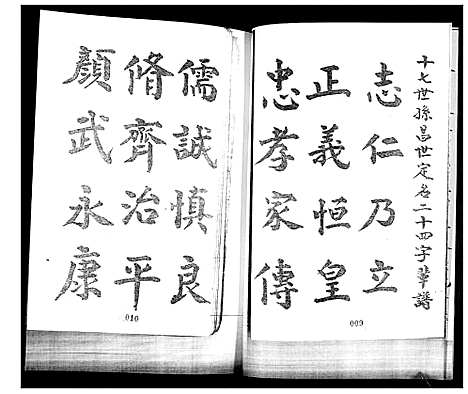 十七世孫昌世定名二十四字輩譜
志仁乃立
正義恒皇
忠孝家傳
009
儒誠慎良
脩齊治平
顏武永康
010